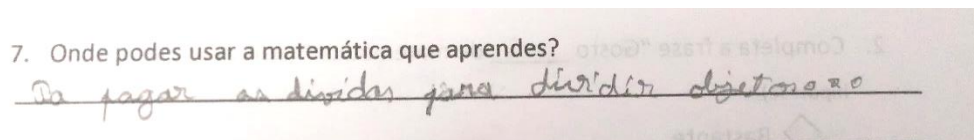 7. Onde podes usar a matemática que aprendes?
Ia pagar as dividas para dividir objetos